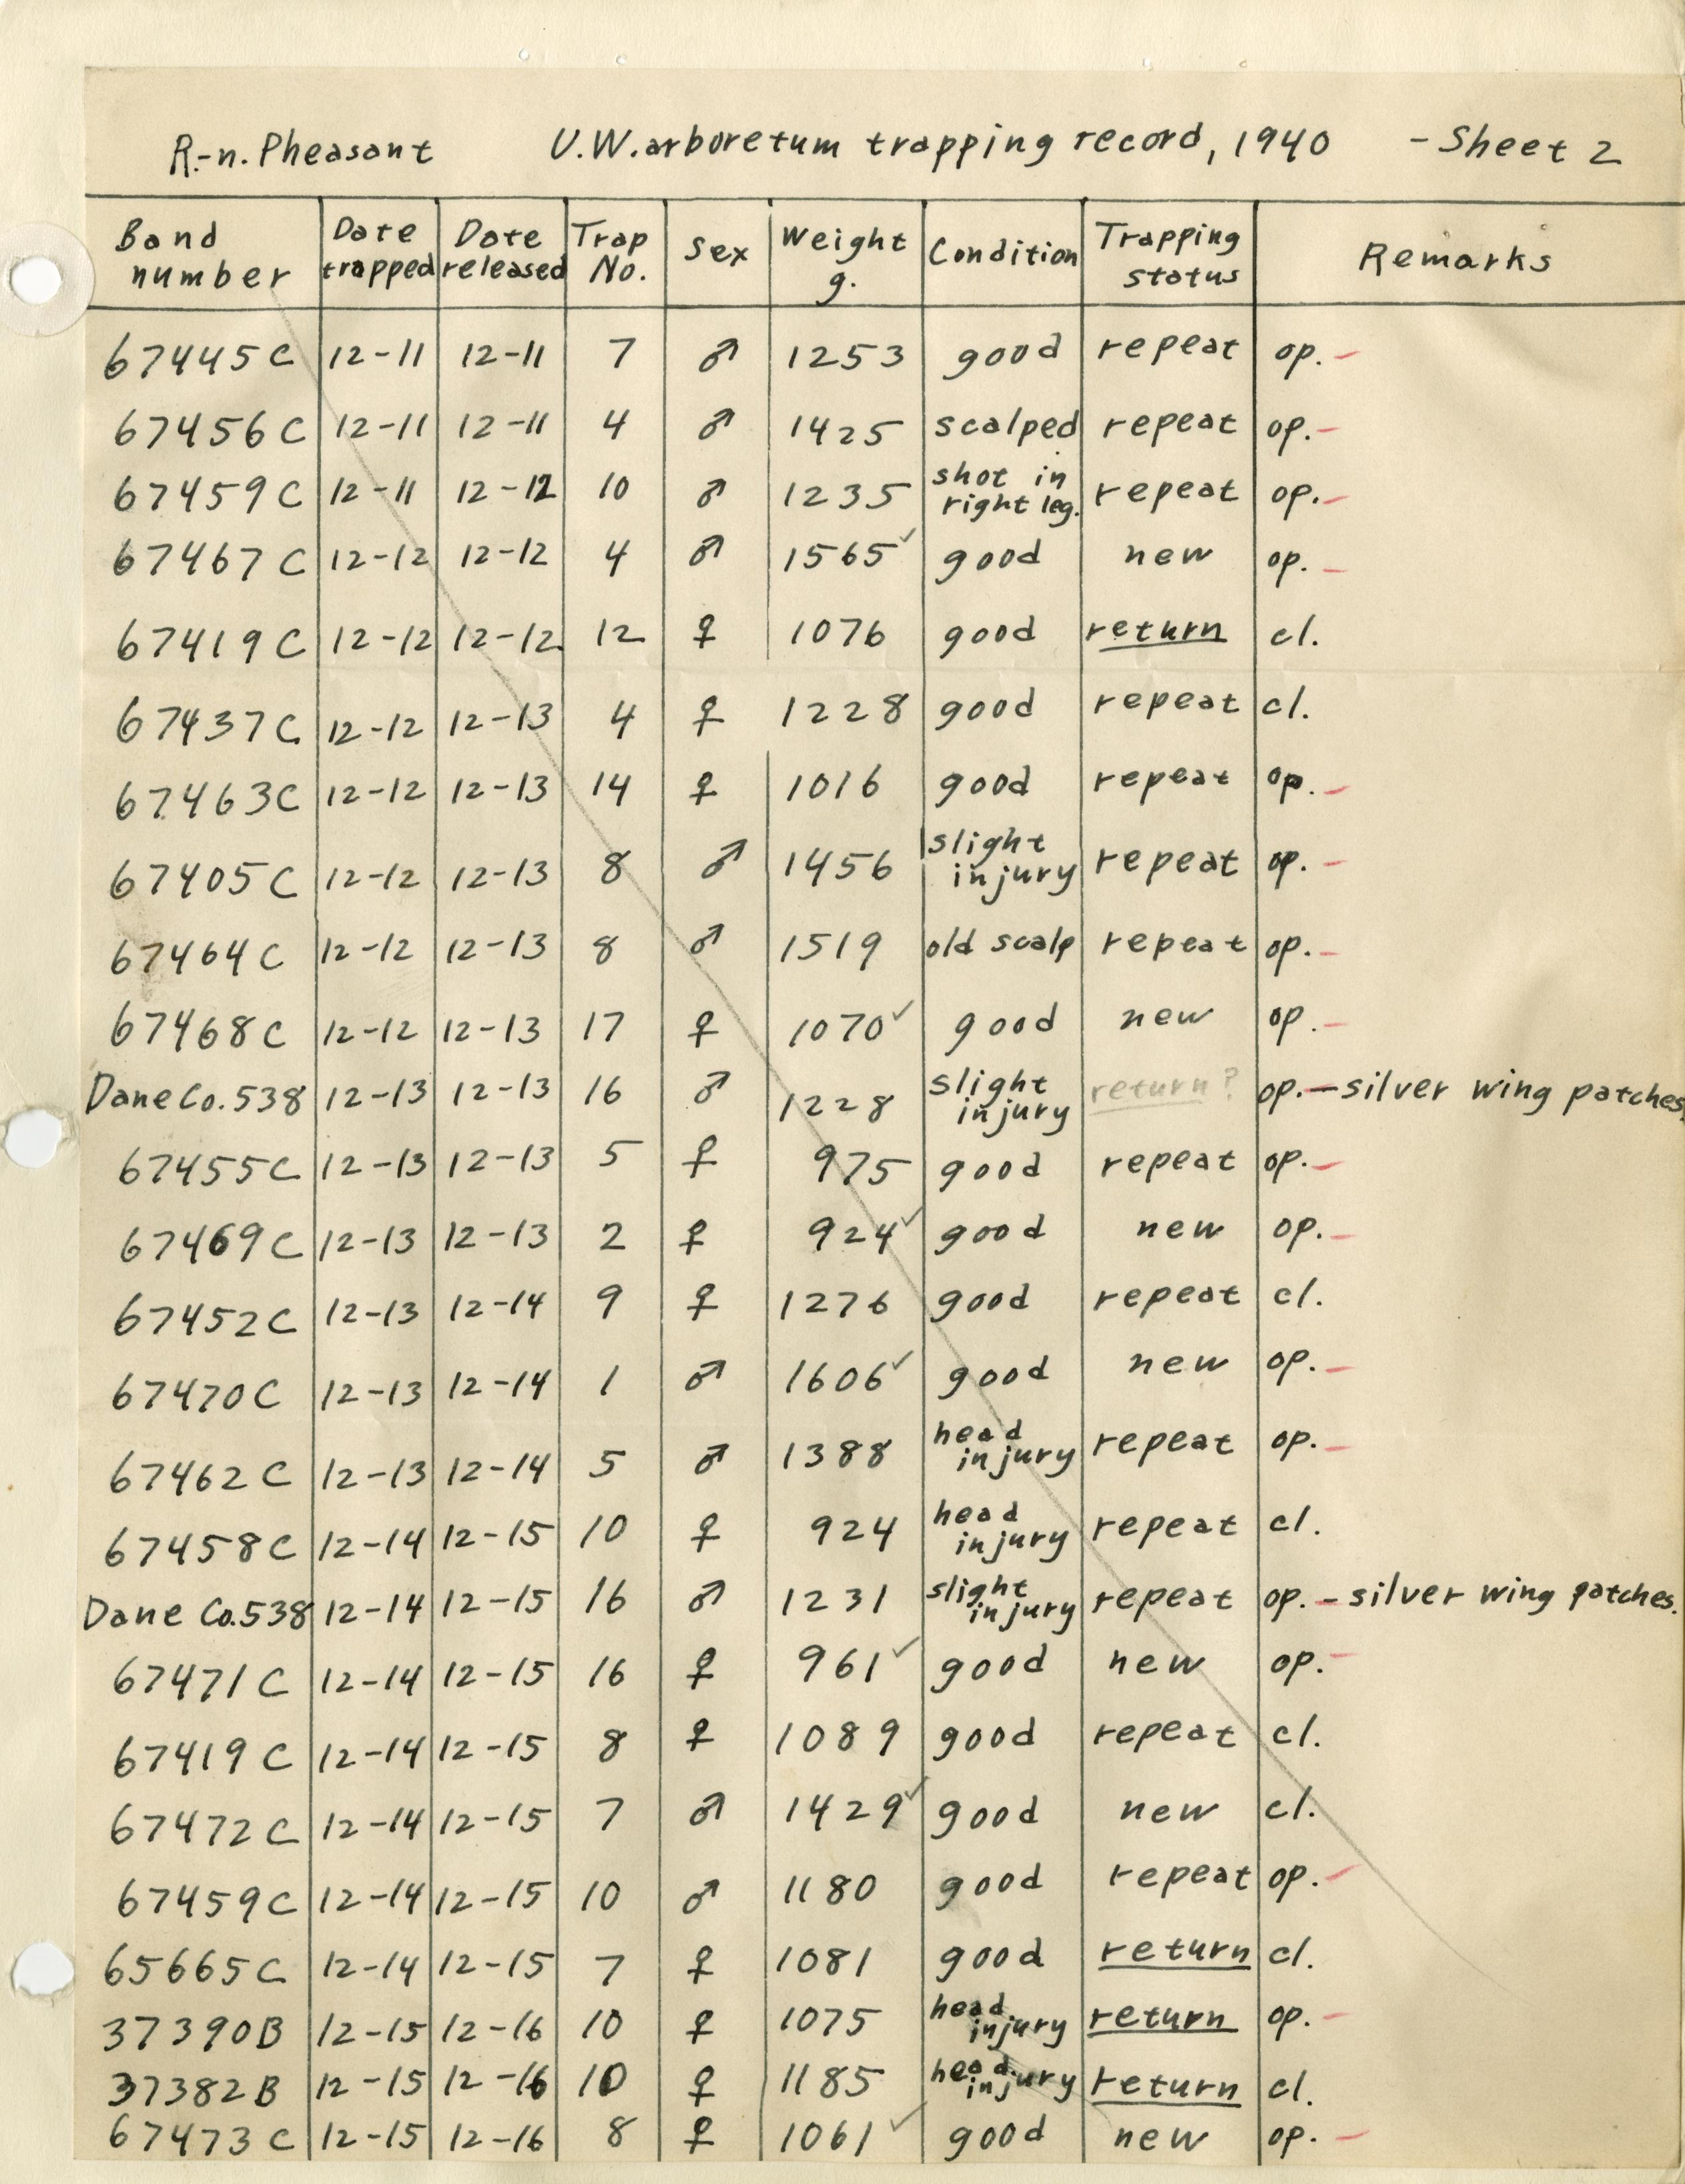 R.-n. Pheasant U.W. arboretum trapping record, 1940 - Sheet 2
Band number Date trapped Date released Trap No. Sex Weight g. Condition Trapping status Remarks
67445C 12-11 12-11 7 ♂ 1253 good repeat op. -
67456C 12-11 12-11 4 ♂ 1425 scalped repeat op. -
67459C 12-11 12-12 10 ♂ 1235 shot in right leg. repeat op. -
67467C 12-12 12-12 4 ♂ 1565✓ good new op. -
67419C 12-12 12-12 12 ♀ 1076 good return cl.
67437C 12-12 12-13 4 ♀ 1228 good repeat cl.
67463C 12-12 12-13 14 ♀ 1016 good repeat op. -
67405C 12-12 12-13 8 ♂ 1456 slight injury repeat op. -
67464C 12-12 12-13 8 ♂ 1519 old scalp repeat op. -
67468C 12-12 12-13 17 ♀ 1070✓ good new op. -
Dane Co. 538 12-13 12-13 16 ♂ 1228 slight injury return? op. - silver wing patches.
67455C 12-13 12-13 5 ♀ 975 good repeat op. -
67469C 12-13 12-13 2 ♀ 924✓ good new op. -
67452C 12-13 12-14 9 ♀ 1276 good repeat cl.
67470C 12-13 12-14 1 ♂ 1606✓ good new op. -
67462C 12-13 12-14 5 ♂ 1388 head injury repeat op. -
67458C 12-14 12-15 10 ♀ 924 head injury repeat cl.
Dane Co. 538 12-14 12-15 16 ♂ 1231 slight injury repeat op. - silver wing patches.
67471C 12-14 12-15 16 ♀ 961✓ good new op. -
67419C 12-14 12-15 8 ♀ 1089 good repeat cl.
67472C 12-14 12-15 7 ♂ 1429✓ good new cl.
67459C 12-14 12-15 10 ♂ 1180 good repeat op. -
65665C 12-14 12-15 7 ♀ 1081 good return cl.
37390B 12-15 12-16 10 ♀ 1075 head injury return op. -
37382B 12-15 12-16 10 ♀ 1185 head injury return cl.
67473C 12-15 12-16 8 ♀ 1061✓ good new op. -